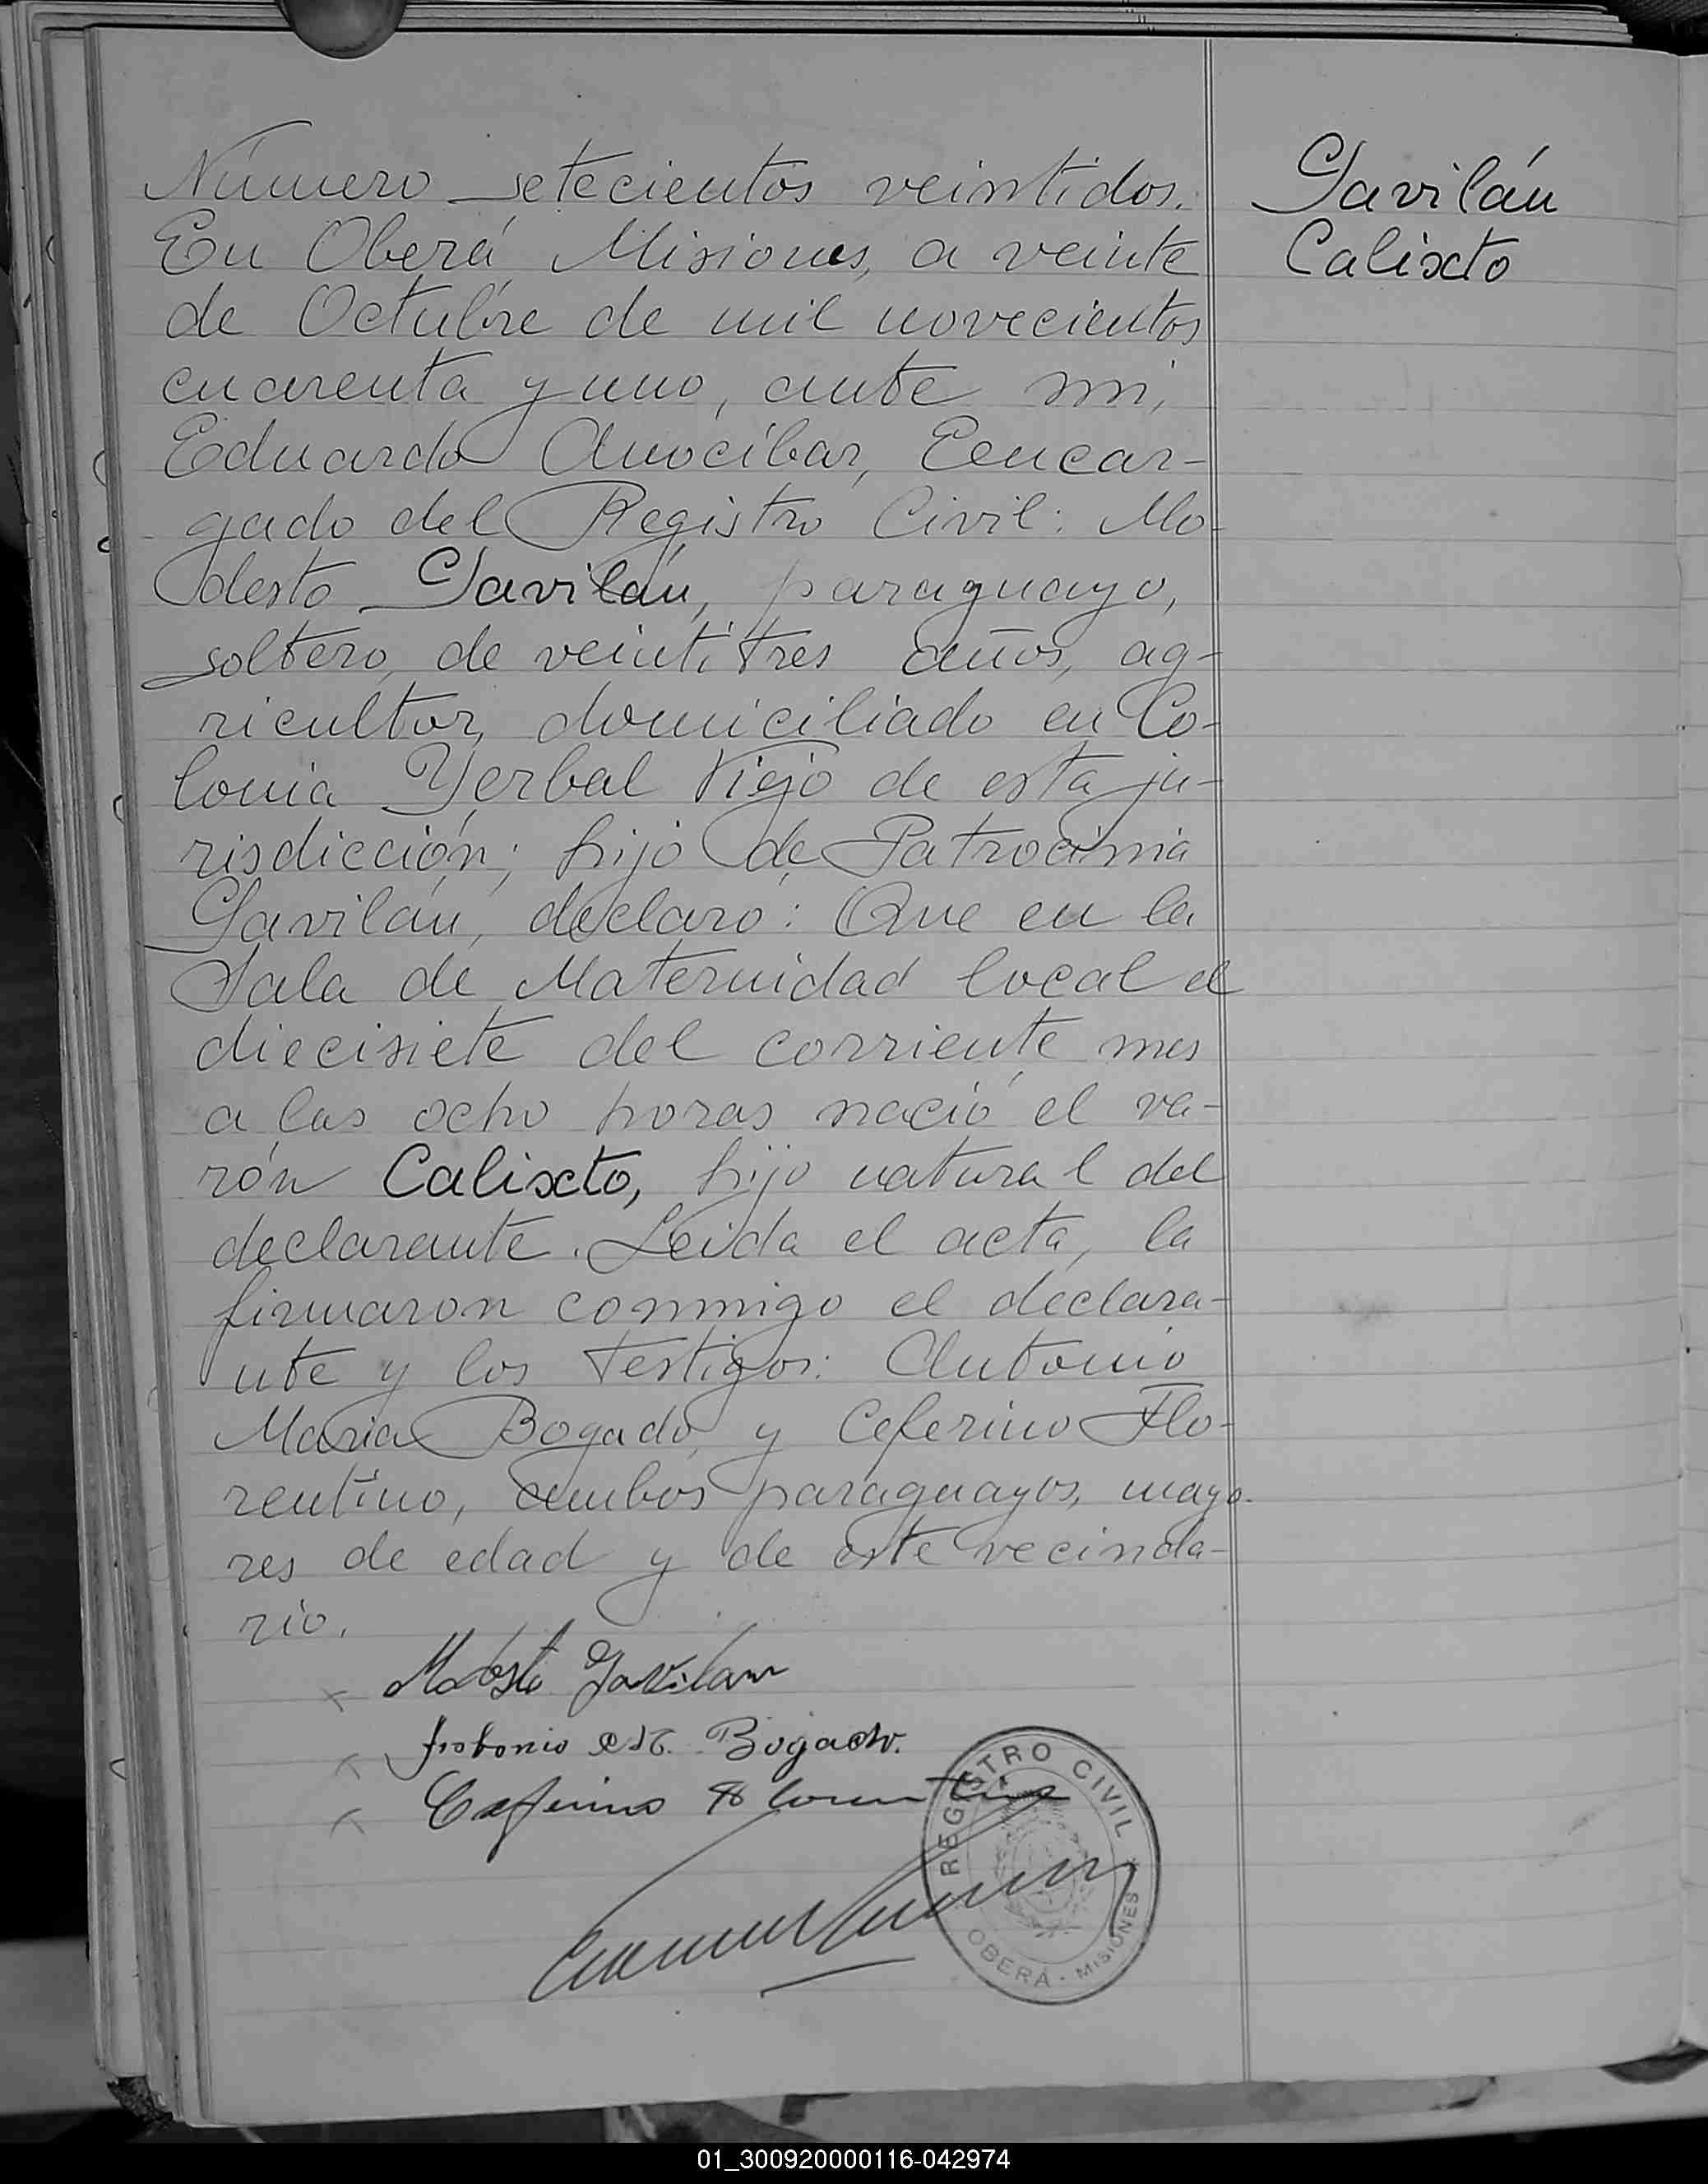 Número setecientos veintidos.
En Oberá Misiones, a veinte
de Octubre de mil novecientos
cuarenta y uno, ante mi,
Eduardo Anocíbar, Encar-
gado del Registro Civil: Mo-
desto Gavilán, paraguayo,
soltero, de veintitres años, ag-
ricultor, domiciliado en Co-
lonia Yerbal Viejo de esta ju-
risdicción; hijo de Patrocinia
Gavilán, declaró: Que en la
Sala de Maternidad local el
diecisiete del corriente mes
a las ocho horas nació el va-
rón Calixto, hijo natural del
declarante. Leida el acta, la
firmaron conmigo el declara-
nte y los testigos: Antonio
Maria Bogado y Ceferino Flo-
rentino, ambos paraguayos, mayo-
res de edad y de este vecinda-
rio.
Gavilán
Calixto
Modesto Gavilan
Antonio M. Bogado.
Ceferino Florentino
REGISTRO CIVIL
OBERÁ - MISIONES
01_300920000116-042974